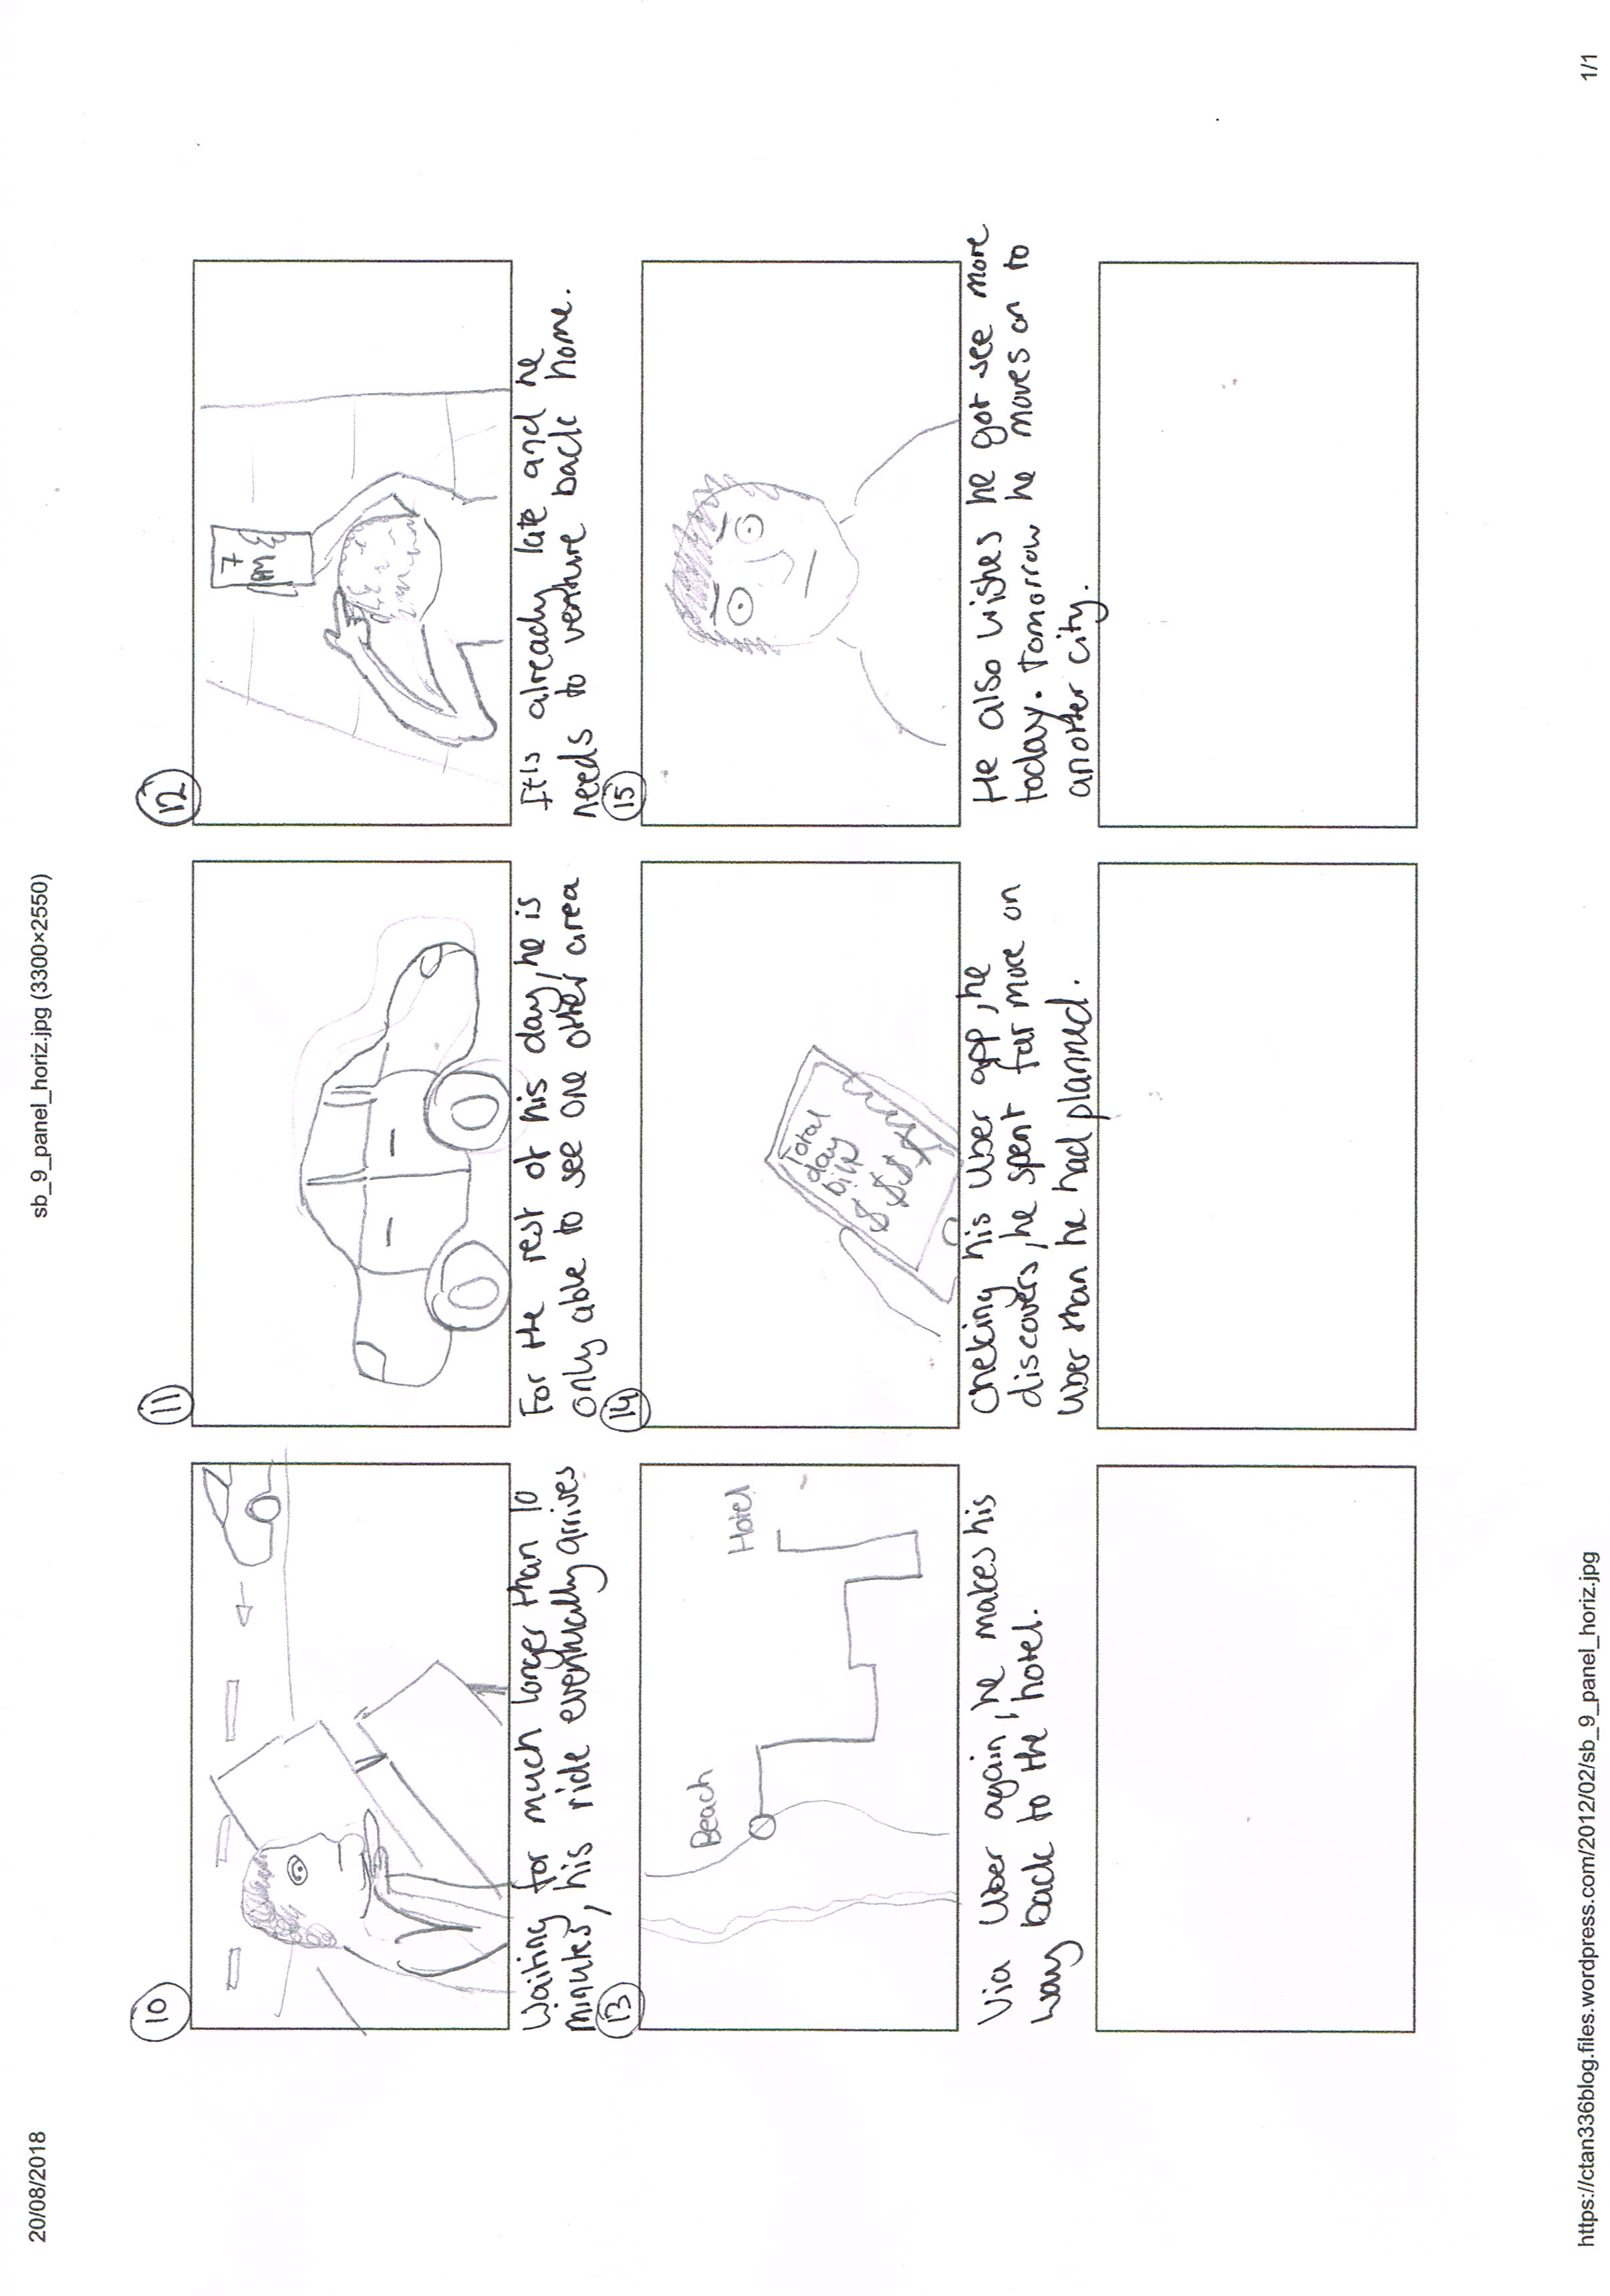 20/08/2018
sb_9_panel_horiz.jpg (3300×2550)
10
Waiting for much longer than 10
minutes, his ride eventually arrives
11
For the rest of his day, he is
only able to see one other area
12
7
pm
It's already late and he
needs to venture back home.
13
Beach
Hotel
Via Uber again, he makes his
way back to the hotel.
14
Total
day
bill
$$$$
Cheking his Uber app, he
discovers, he spent far more on
Uber than he had planned.
15
He also wishes he got see more
today. Tomorrow he moves on to
another city.
https://ctan336blog.files.wordpress.com/2012/02/sb_9_panel_horiz.jpg
1/1